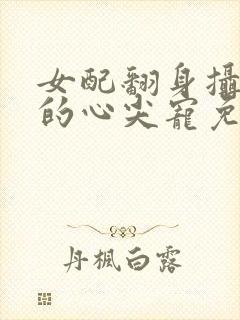 女配翻身攝
的心尖寵免
丹楓白露